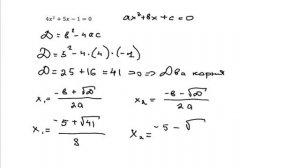 4x² + 5x − 1 = 0    ax² + bx + c = 0
D = b² − 4ac
D = 5² − 4 · (4) · (−1)
D = 25 + 16 = 41 > 0 ⇒ Два корня
x₁ = (−b + √D) / 2a    x₂ = (−b − √D) / 2a
x₁ = (−5 + √41) / 8    x₂ = −5 − √